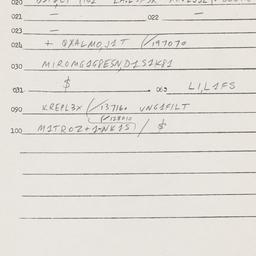 021 – 022 –
023 –
024 + QXALMO,J1T (/197070
030 MIROMG1G8ESN,D1S1K81
031 $ 063 LI,L1FS
090 KREPL3X (/137160 VNG1FILT
(/128010
100 M1TROZ+1-NK1S) / $